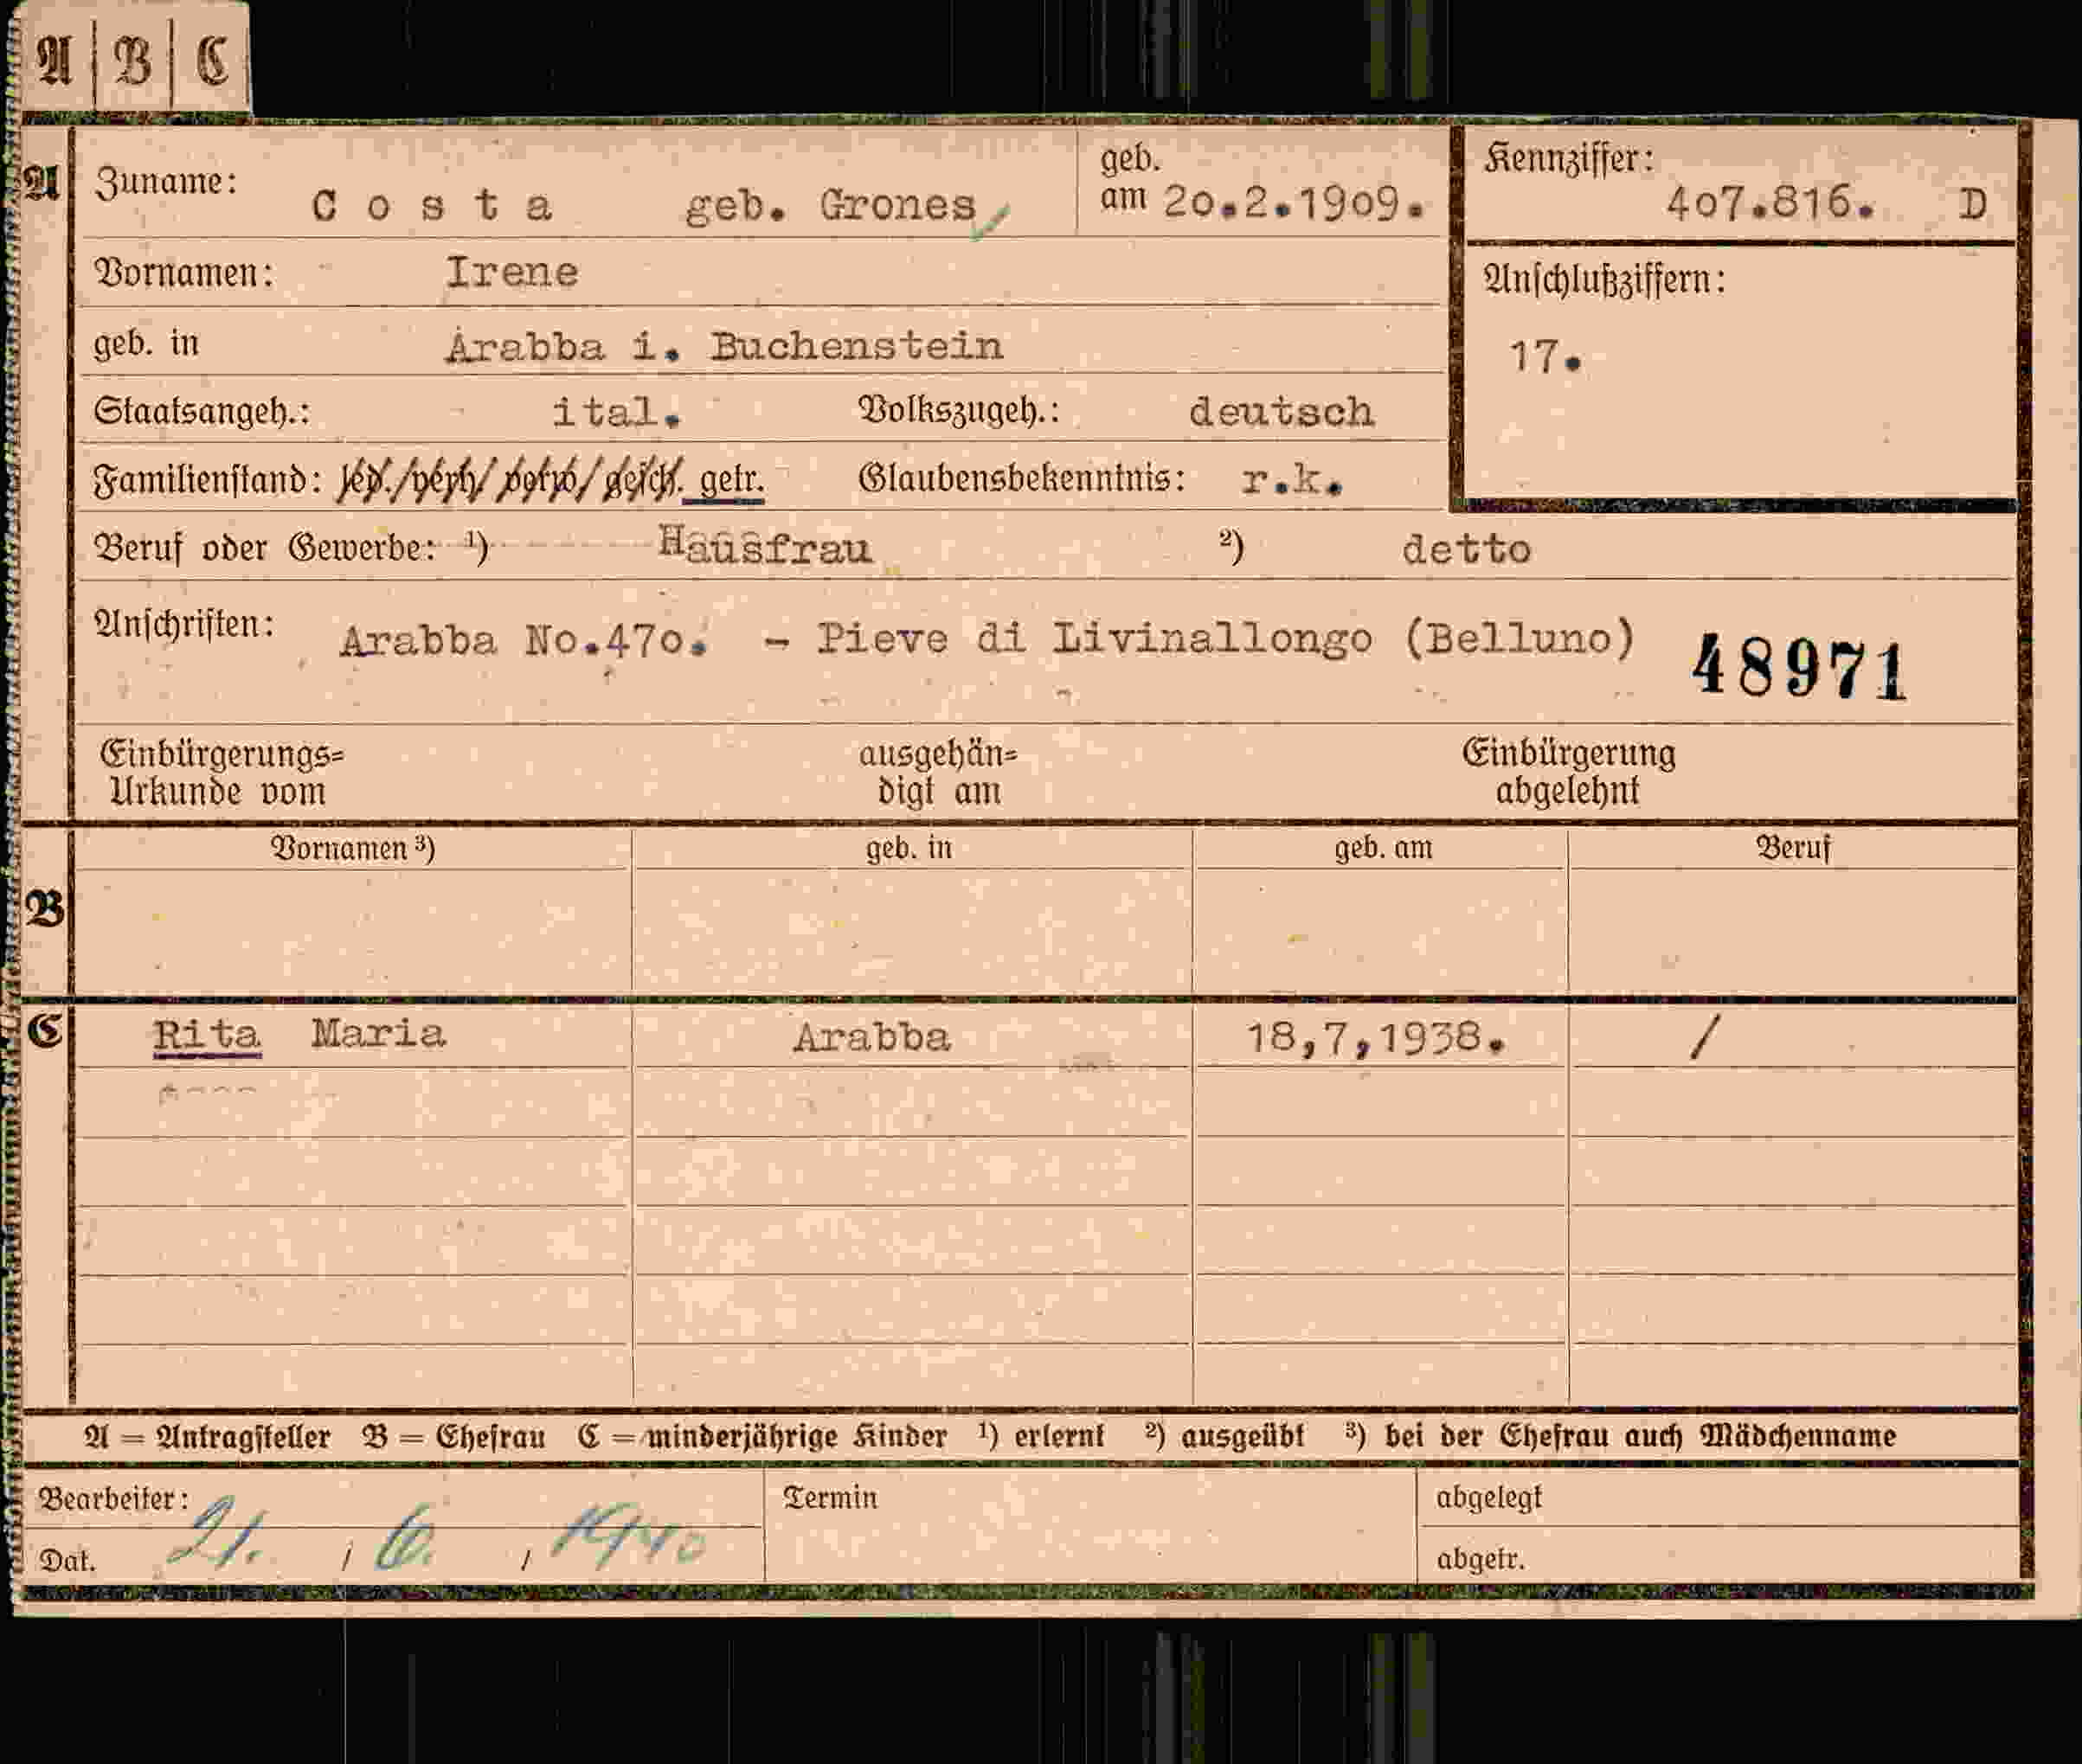 A B C
A Zuname: Costa geb. Grones geb. am 20.2.1909. Kennziffer: 407.816. D
Vornamen: Irene Anschlußziffern:
geb. in Arabba i. Buchenstein 17.
Staatsangeh.: ital. Volkszugeh.: deutsch
Familienstand: led./verh/verw/gesch. getr. Glaubensbekenntnis: r.k.
Beruf oder Gewerbe: ¹) Hausfrau ²) detto
Anschriften: Arabba No.470. - Pieve di Livinallongo (Belluno) 48971
Einbürgerungs= ausgehän= Einbürgerung
Urkunde vom digt am abgelehnt
Vornamen ³) geb. in geb. am Beruf
B
C Rita Maria Arabba 18,7,1938. /
A = Antragsteller B = Ehefrau C = minderjährige Kinder ¹) erlernt ²) ausgeübt ³) bei der Ehefrau auch Mädchenname
Bearbeiter: Termin abgelegt
Dat. 21. / 6. / 1940 abgetr.